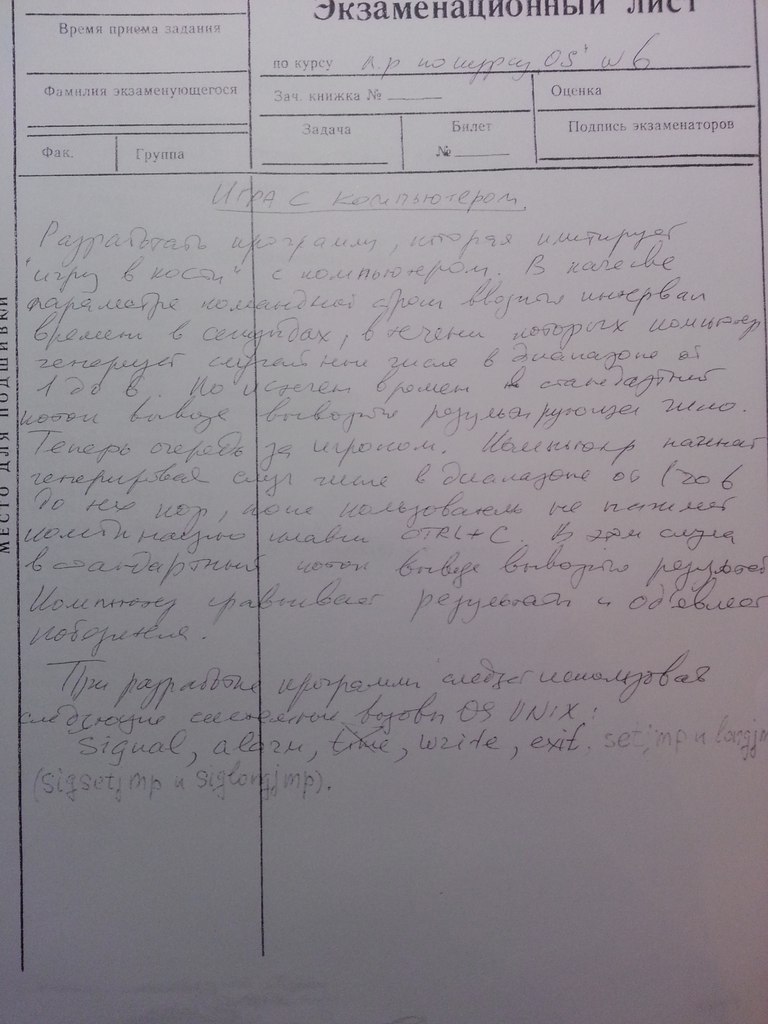 Экзаменационный лист
Время приема задания
по курсу л.р по курсу OS' № 6
Фамилия экзаменующегося
Зач. книжка №
Оценка
Задача
Билет
Подпись экзаменаторов
№
Фак.
Группа
МЕСТО ДЛЯ ПОДШИВКИ
Игра с компьютером.
Разработать программу, которая имитирует
"игру в кости" с компьютером. В качестве
параметра командной строки вводится интервал
времени в секундах, в течении которых компьютер
генерирует случайные числа в диапазоне от
1 до 6. По истечен времени в стандартный
поток вывода выводится результирующее число.
Теперь очередь за игроком. Компьютер начинает
генерировать случ числа в диапазоне от 1 до 6
до тех пор, пока пользователь не нажмет
комбинацию клавиш CTRL+C. В этом случае
в стандартный поток вывода выводится результат
Компьютер сравнивает результаты и объявляет
победителя.
При разработке программы следует использовать
следующие системные вызовы OS UNIX:
signal, alarm, time, write, exit. setjmp и longjm
(sigsetjmp и siglongjmp).